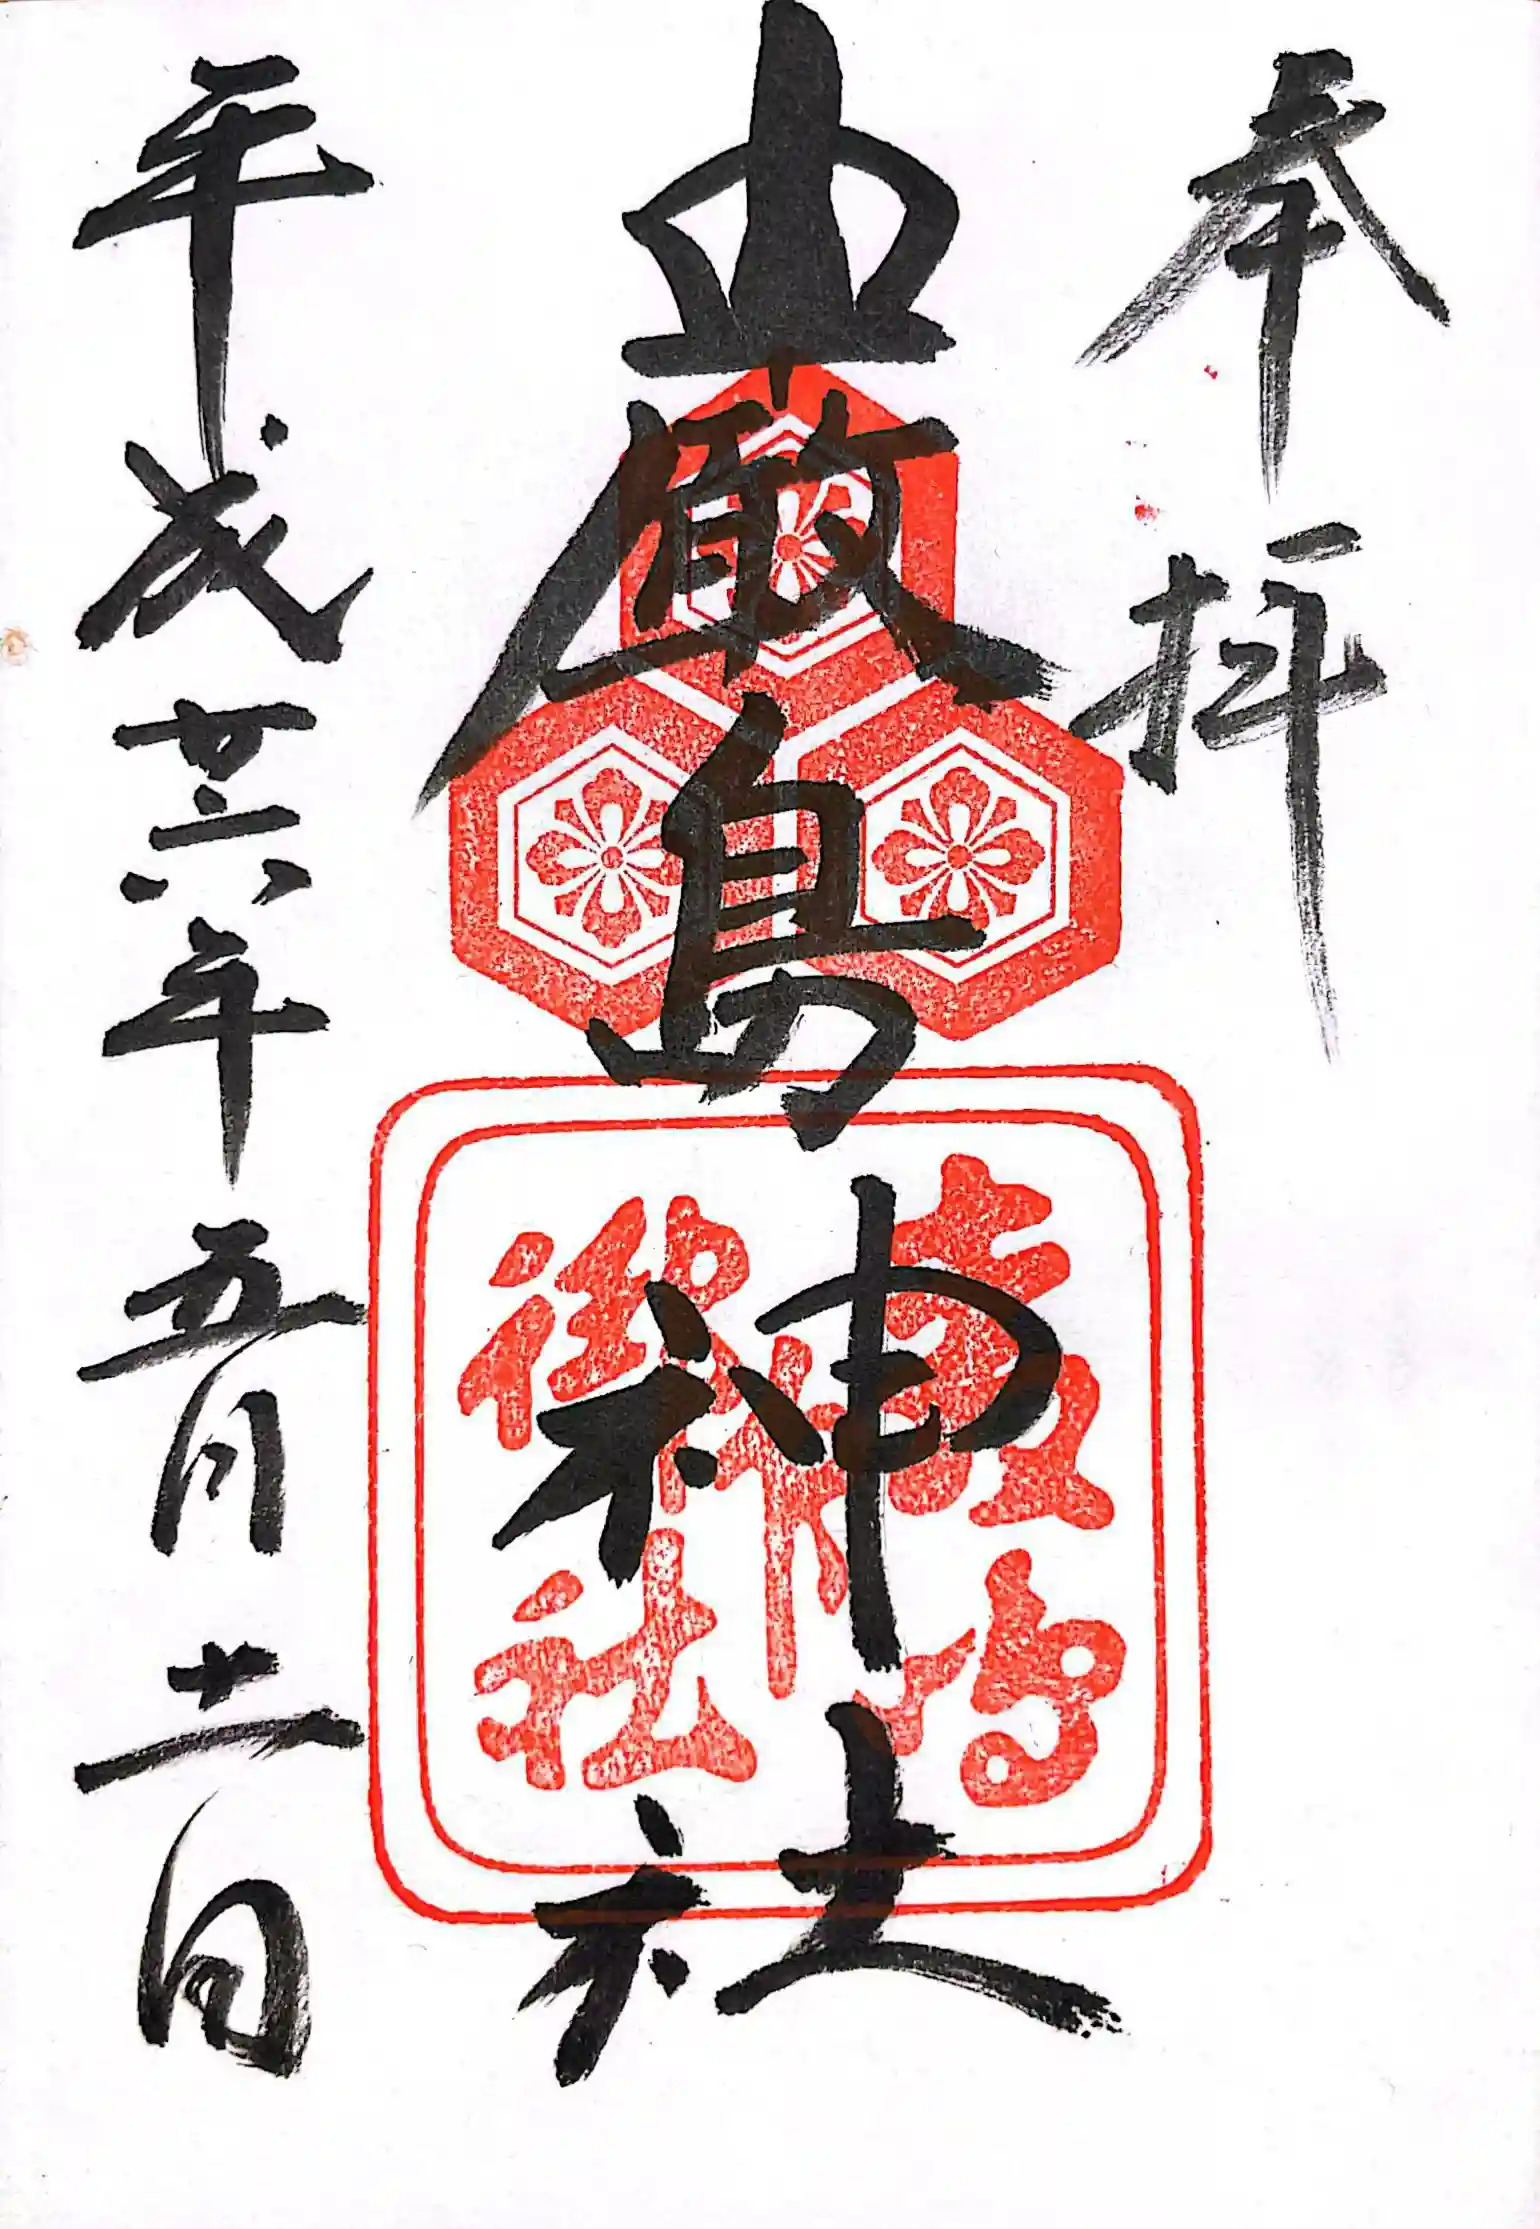 奉拝
厳島神社
嚴嶋
御社
平成廿六年五月十一日